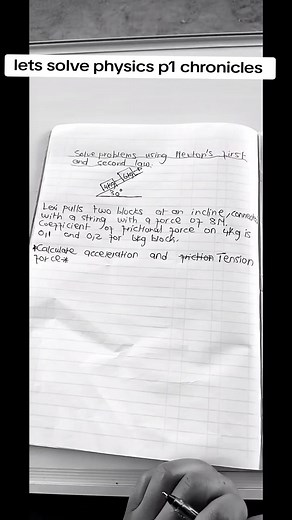 lets solve physics p1 chronicles
Solve problems using Newton's first
and second law
4kg
6kg
30°
Lexi pulls two blocks at an incline, connected
with a string with a force of 8N.
Coefficient of frictional force on 4kg is
0,1 and 0,2 for 6kg block.
*Calculate acceleration and friction Tension
force*